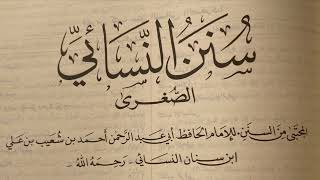 سُنَنُ النَّسَائِيِّ
الصُّغْرَى
المُجْتَبَى مِنَ السُّنَنِ . لِلإِمَامِ الحَافِظِ أَبِي عَبْدِ الرَّحْمٰنِ أَحْمَدَ بنِ شُعَيْبِ بنِ عَلِيّ
ابْنِ سِنَانٍ النَّسَائِيّ - رَحِمَهُ اللهُ -